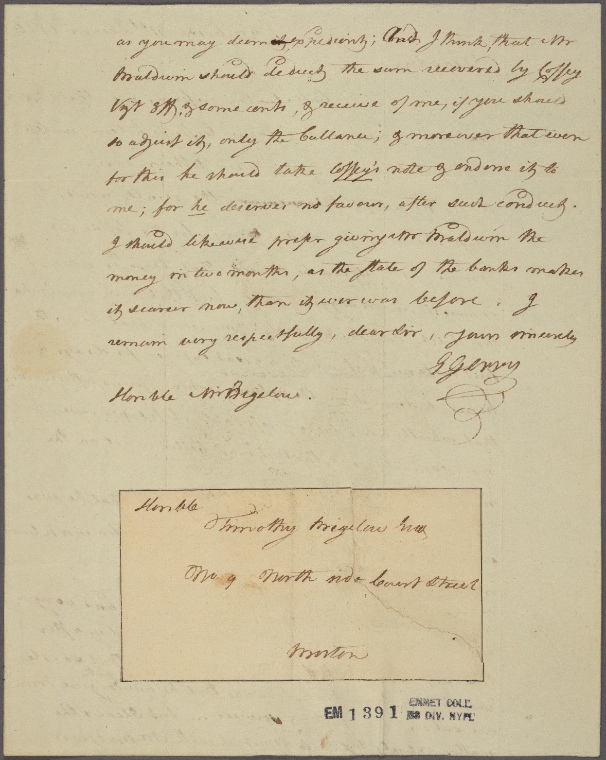 as you may deem it expedient; And I think, that Mr
Braldwin should deduct the sum recovered by Coffey
& some cents, & receive of me, if you should
so adjust it, only the ballance; & moreover that even
for this he should take Coffey's note & endorse it to
me; for he deserves no favour, after such conduct.
I should likewise prefer giving Mr Braldwin the
money in two months, as the state of the banks makes
it scarcer now, than it ever was before. I
remain very respectfully, dear Sir, yours sincerely
E Gerry
Honble Mr Bigelow.
Honble
Timothy Bigelow Esqr
No 9 North side Court Street
Boston
EM 1391
EMMET COLL.
MS DIV. NYPL